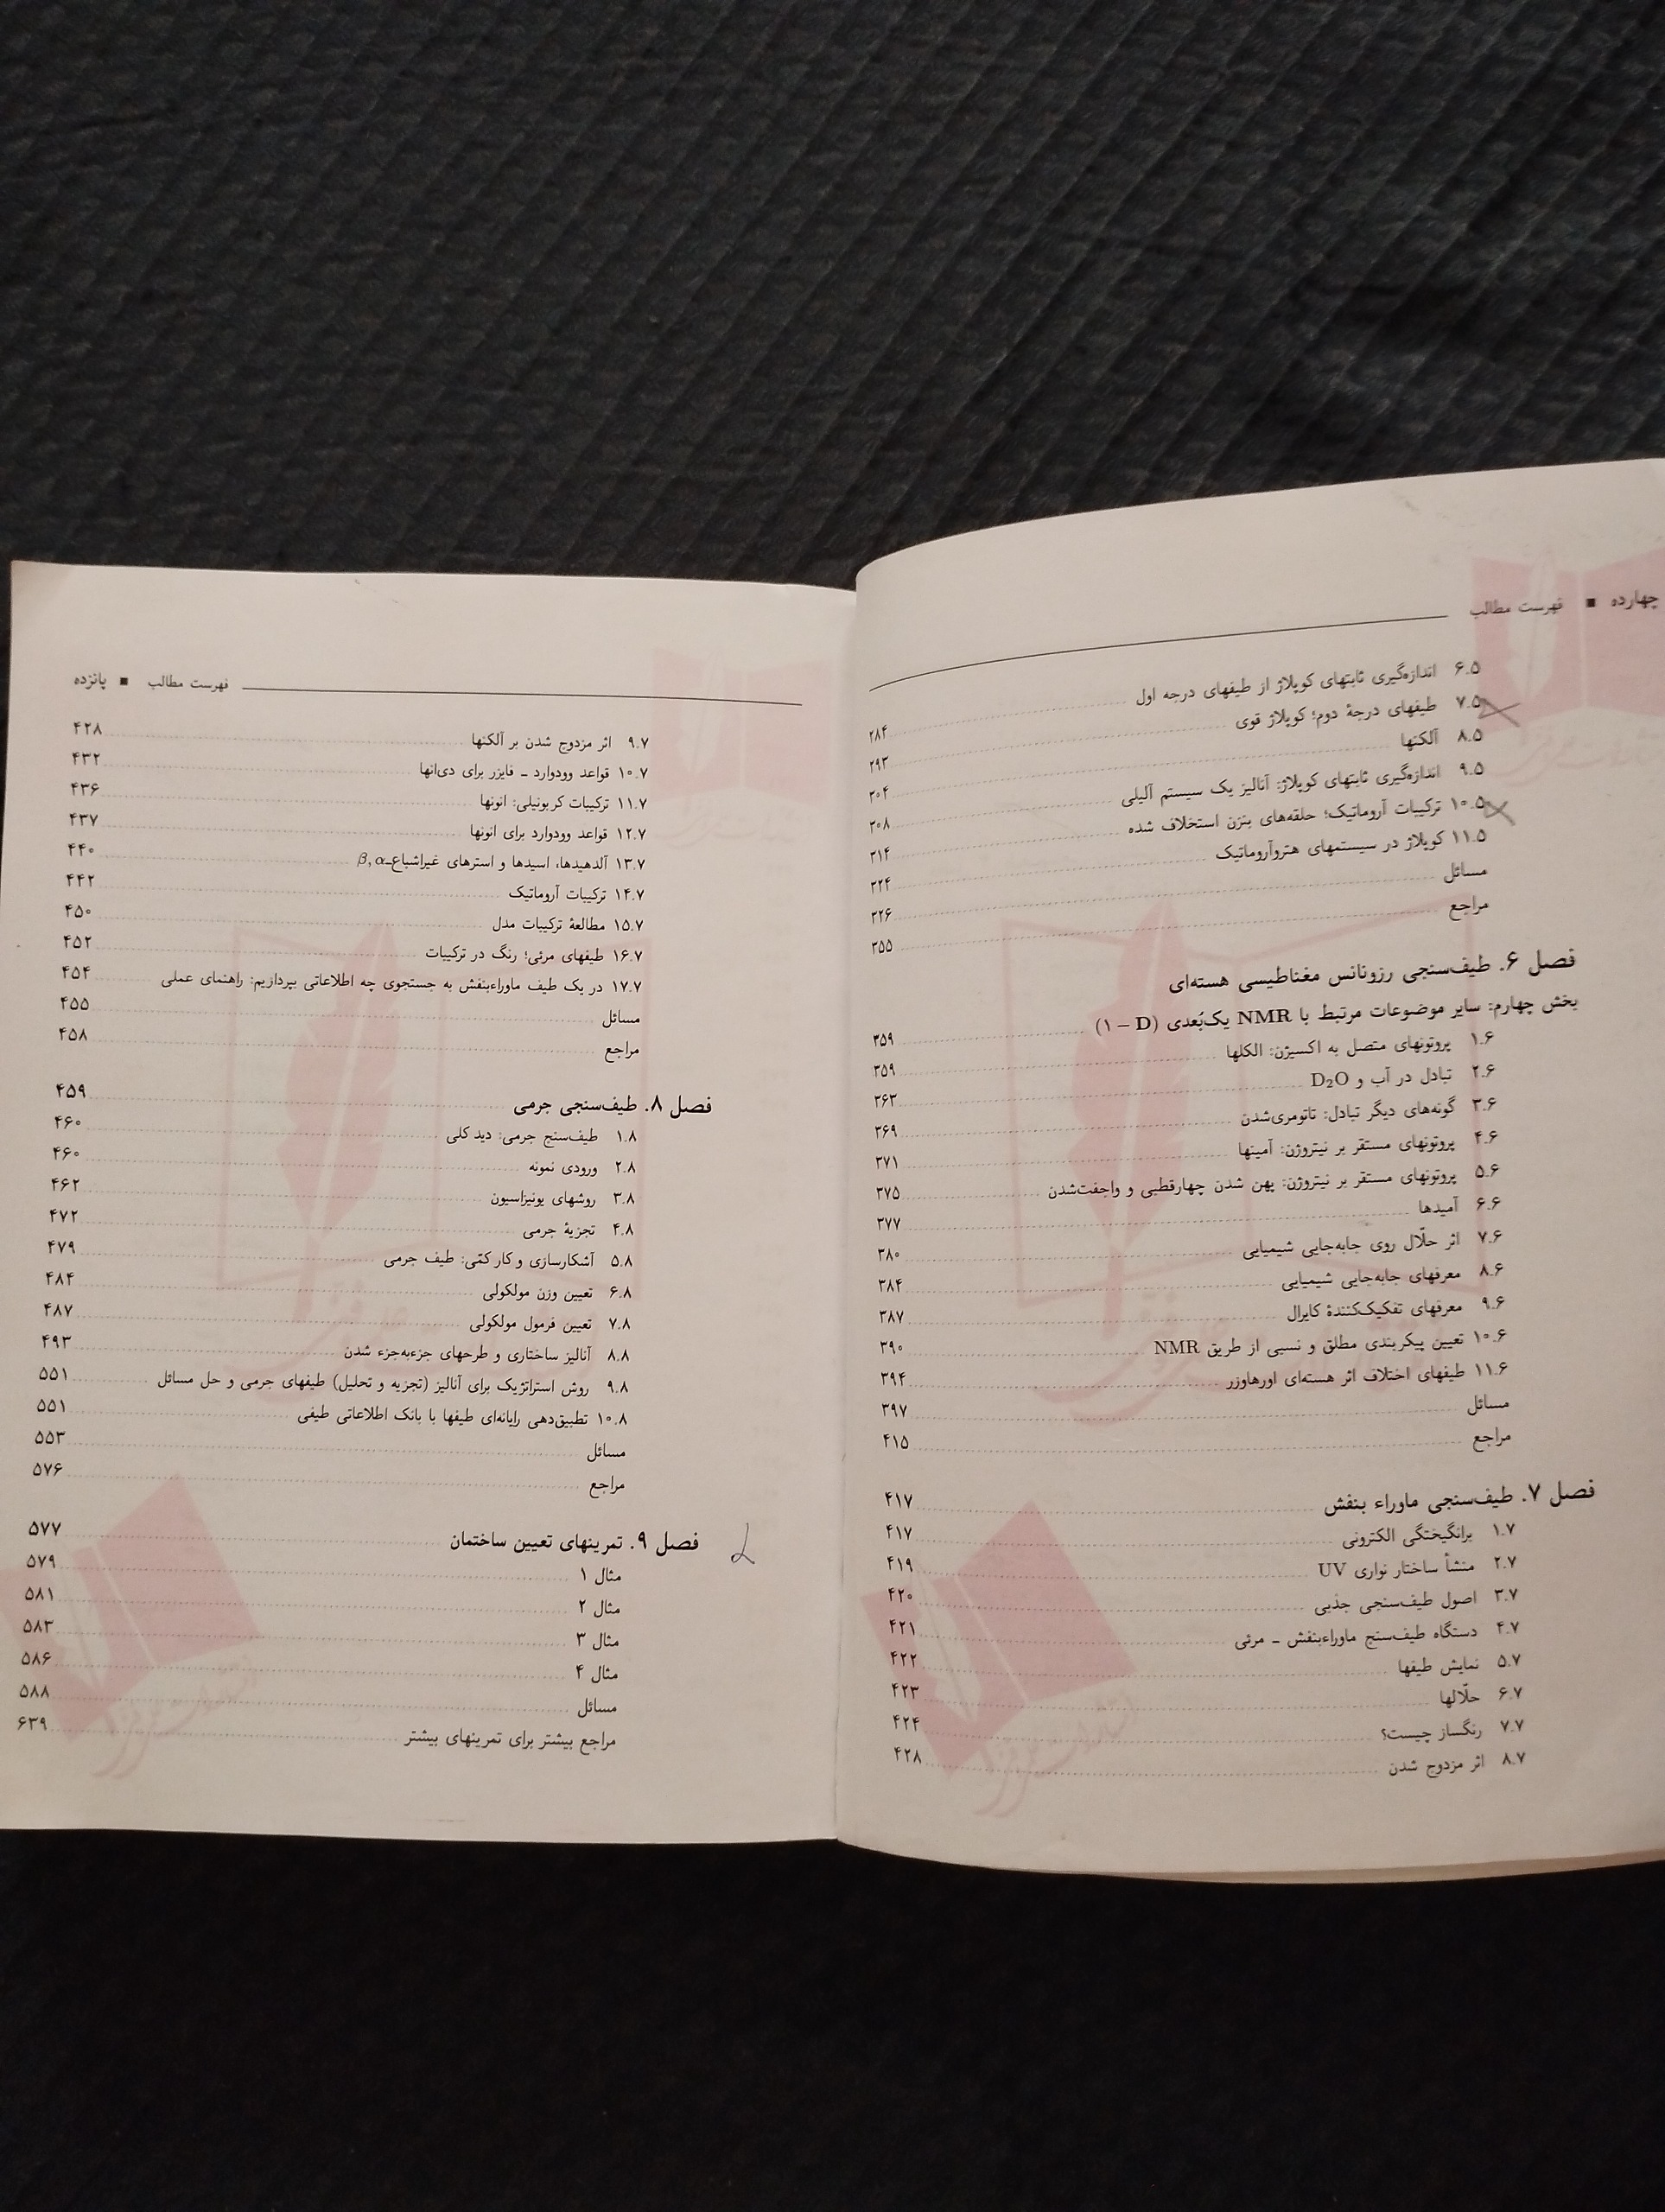 چهارده ■ فهرست مطالب
۶.۵ اندازه‌گیری ثابتهای کوپلاژ از طیفهای درجه اول ۲۸۴
۷.۵ طیفهای درجهٔ دوم؛ کوپلاژ قوی ۲۹۳
۸.۵ آلکنها ۳۰۴
۹.۵ اندازه‌گیری ثابتهای کوپلاژ: آنالیز یک سیستم آلیلی ۳۰۸
۱۰.۵ ترکیبات آروماتیک؛ حلقه‌های بنزن استخلاف شده ۳۱۴
۱۱.۵ کوپلاژ در سیستمهای هتروآروماتیک ۳۲۴
مسائل ۳۲۶
مراجع ۳۵۵
فصل ۶. طیف‌سنجی رزونانس مغناطیسی هسته‌ای
بخش چهارم: سایر موضوعات مرتبط با NMR یک‌بُعدی (۱ – D) ۳۵۹
۱.۶ پروتونهای متصل به اکسیژن: الکلها ۳۵۹
۲.۶ تبادل در آب و D₂O ۳۶۳
۳.۶ گونه‌های دیگر تبادل: تاتومری‌شدن ۳۶۹
۴.۶ پروتونهای مستقر بر نیتروژن: آمینها ۳۷۱
۵.۶ پروتونهای مستقر بر نیتروژن: پهن شدن چهارقطبی و واجفت‌شدن ۳۷۵
۶.۶ آمیدها ۳۷۷
۷.۶ اثر حلّال روی جابه‌جایی شیمیایی ۳۸۰
۸.۶ معرفهای جابه‌جایی شیمیایی ۳۸۴
۹.۶ معرفهای تفکیک‌کنندهٔ کایرال ۳۸۷
۱۰.۶ تعیین پیکربندی مطلق و نسبی از طریق NMR ۳۹۰
۱۱.۶ طیفهای اختلاف اثر هسته‌ای اورهاوزر ۳۹۴
مسائل ۳۹۷
مراجع ۴۱۵
فصل ۷. طیف‌سنجی ماوراء بنفش ۴۱۷
۱.۷ برانگیختگی الکترونی ۴۱۷
۲.۷ منشأ ساختار نواری UV ۴۱۹
۳.۷ اصول طیف‌سنجی جذبی ۴۲۰
۴.۷ دستگاه طیف‌سنج ماوراءبنفش ـ مرئی ۴۲۱
۵.۷ نمایش طیفها ۴۲۲
۶.۷ حلّالها ۴۲۳
۷.۷ رنگساز چیست؟ ۴۲۴
۸.۷ اثر مزدوج شدن ۴۲۸
فهرست مطالب ■ پانزده
۹.۷ اثر مزدوج شدن بر آلکنها ۴۲۸
۱۰.۷ قواعد وودوارد ـ فایزر برای دی‌انها ۴۳۲
۱۱.۷ ترکیبات کربونیلی: انونها ۴۳۶
۱۲.۷ قواعد وودوارد برای انونها ۴۳۷
۱۳.۷ آلدهیدها، اسیدها و استرهای غیراشباع‌ـβ,α ۴۴۰
۱۴.۷ ترکیبات آروماتیک ۴۴۲
۱۵.۷ مطالعهٔ ترکیبات مدل ۴۵۰
۱۶.۷ طیفهای مرئی؛ رنگ در ترکیبات ۴۵۲
۱۷.۷ در یک طیف ماوراءبنفش به جستجوی چه اطلاعاتی بپردازیم: راهنمای عملی ۴۵۴
مسائل ۴۵۵
مراجع ۴۵۸
فصل ۸. طیف‌سنجی جرمی ۴۵۹
۱.۸ طیف‌سنج جرمی: دید کلی ۴۶۰
۲.۸ ورودی نمونه ۴۶۰
۳.۸ روشهای یونیزاسیون ۴۶۲
۴.۸ تجزیهٔ جرمی ۴۷۲
۵.۸ آشکارسازی و کار کمّی: طیف جرمی ۴۷۹
۶.۸ تعیین وزن مولکولی ۴۸۴
۷.۸ تعیین فرمول مولکولی ۴۸۷
۸.۸ آنالیز ساختاری و طرحهای جزءبه‌جزء شدن ۴۹۳
۹.۸ روش استراتژیک برای آنالیز (تجزیه و تحلیل) طیفهای جرمی و حل مسائل ۵۵۱
۱۰.۸ تطبیق‌دهی رایانه‌ای طیفها با بانک اطلاعاتی طیفی ۵۵۱
مسائل ۵۵۳
مراجع ۵۷۶
فصل ۹. تمرینهای تعیین ساختمان ۵۷۷
مثال ۱ ۵۷۹
مثال ۲ ۵۸۱
مثال ۳ ۵۸۳
مثال ۴ ۵۸۶
مسائل ۵۸۸
مراجع بیشتر برای تمرینهای بیشتر ۶۳۹